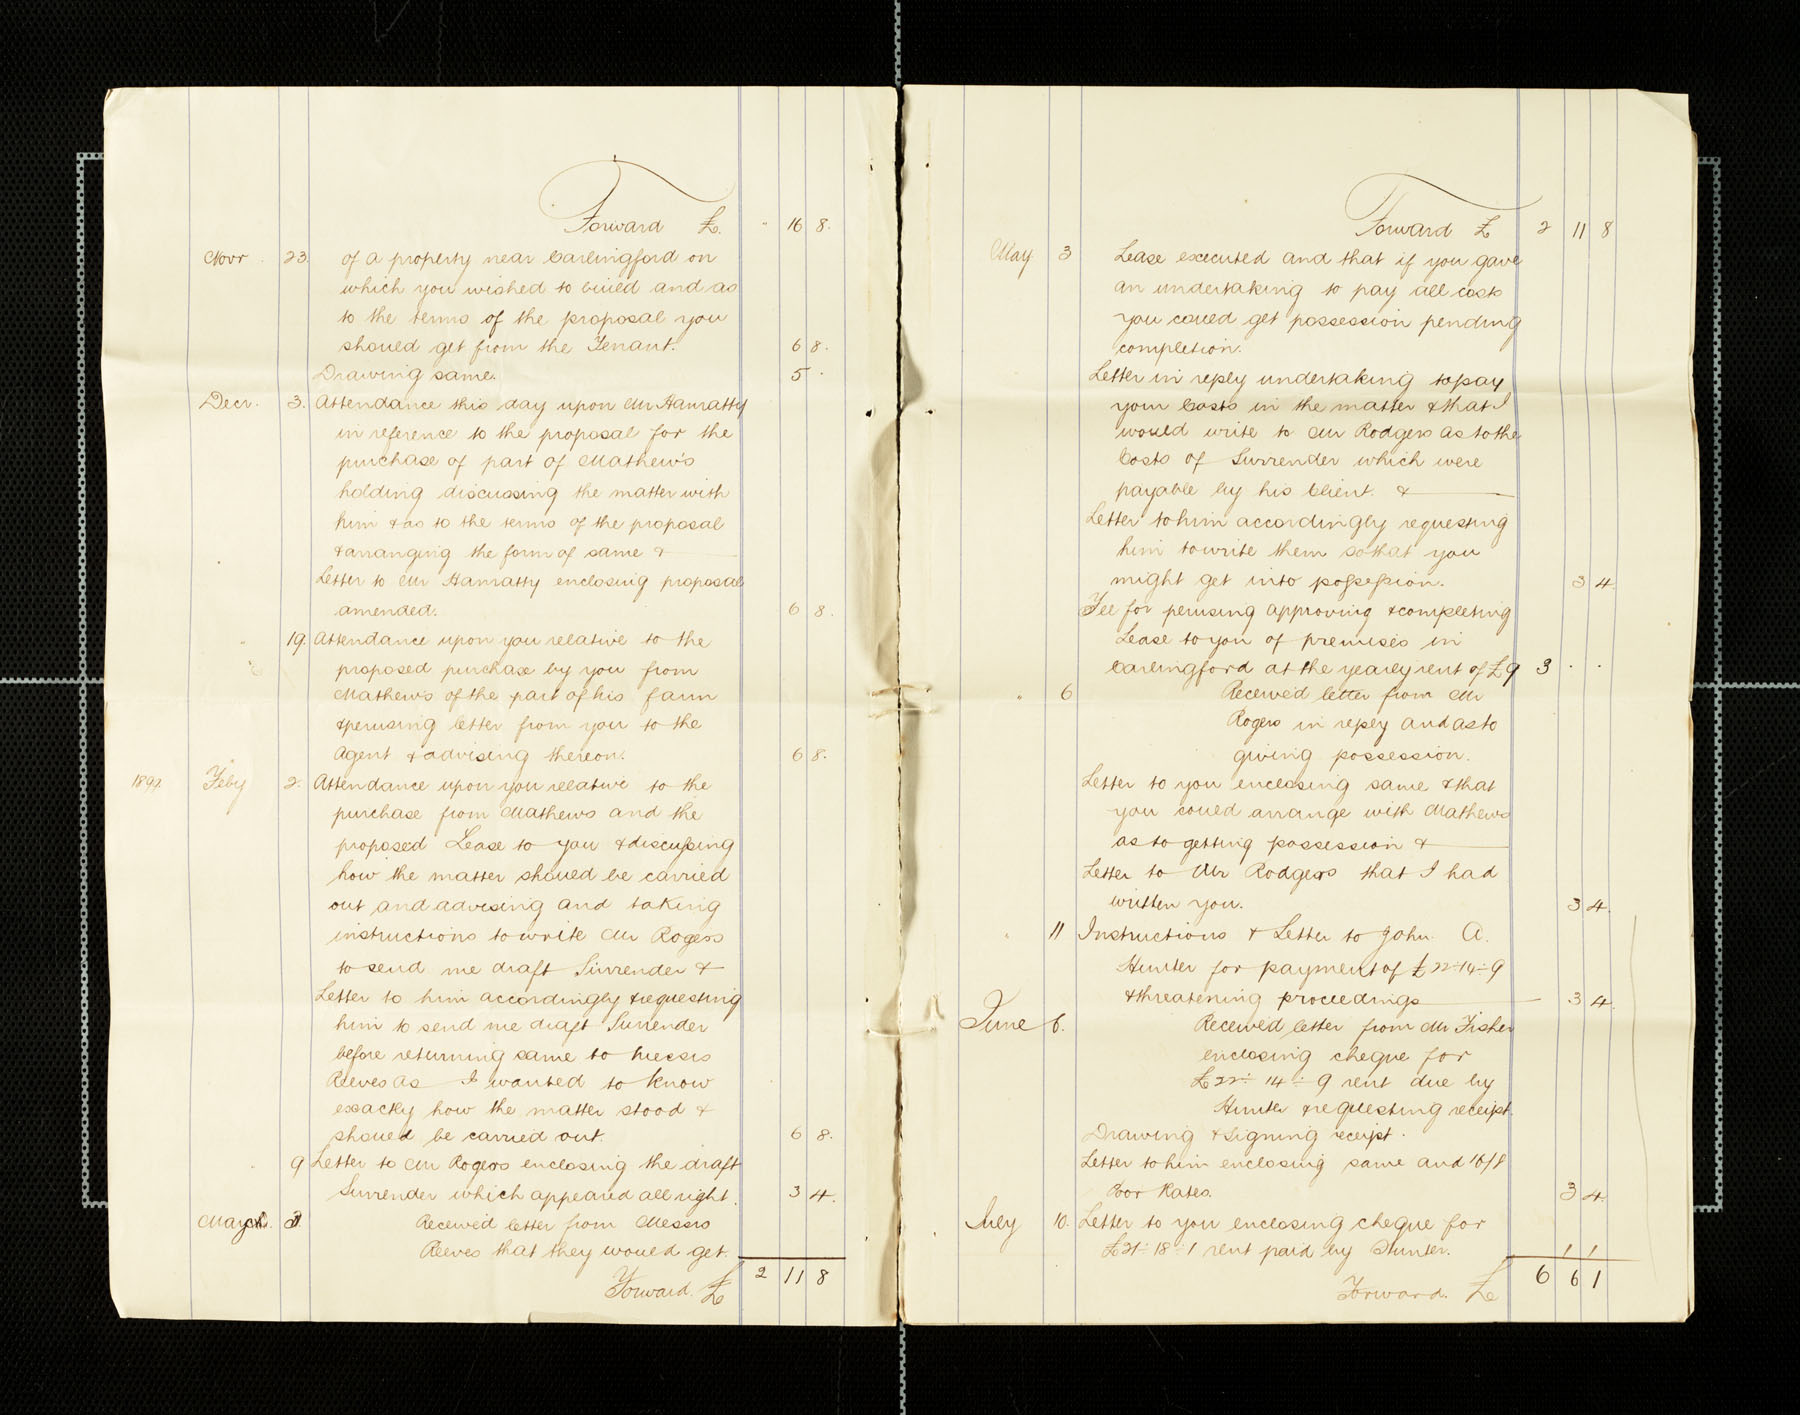 Forward £. " 16 8.
Novr. 23. of a property near Carlingford on
which you wished to build and as
to the terms of the proposal you
should get from the Tenant. 6 8.
Drawing same. 5 .
Decr. 3. Attendance this day upon Mr Hanratty
in reference to the proposal for the
purchase of part of Mathew's
holding discussing the matter with
him & as to the terms of the proposal
& arranging the form of same &
Letter to Mr Hanratty enclosing proposal
amended. 6 8.
" 19. Attendance upon you relative to the
proposed purchase by you from
Mathews of the part of his farm
& perusing letter from you to the
Agent & advising thereon. 6 8.
Feby 2. Attendance upon you relative to the
purchase from Mathews and the
proposed Lease to you & discussing
how the matter should be carried
out and advising and taking
instructions to write Mr Rogers
to send me draft Surrender &
Letter to him accordingly & requesting
him to send me draft Surrender
before returning same to Messrs
Reeves as I wanted to know
exactly how the matter stood &
should be carried out. 6 8.
" 9 Letter to Mr Rogers enclosing the draft
Surrender which appeared all right. 3 4.
Received letter from Messrs
Reeves that they would get.
Forward. £ 2 11 8
Forward £ 2 11 8
May 3 Lease executed and that if you gave
an undertaking to pay all costs
you could get possession pending
completion.
Letter in reply undertaking to pay
your Costs in the matter & that I
would write to Mr Rodgers as to the
Costs of Surrender which were
payable by his Client. &
Letter to him accordingly requesting
him to write them so that you
might get into possession. 3 4.
Fee for perusing approving & completing
Lease to you of premises in
Carlingford at the yearly rent of £9 3 . .
" 6 Received letter from Mr
Rogers in reply and as to
giving possession.
Letter to you enclosing same & that
you could arrange with Mathews
as to getting possession &
Letter to Mr Rodgers that I had
written you. 3 4.
" 11 Instructions & Letter to John A.
Hunter for payment of £22-14-9
& threatening proceedings 3 4.
June 6. Received letter from Mr Fisher
enclosing cheque for
£22-14-9 rent due by
Hunter & requesting receipt.
Drawing & Signing receipt.
Letter to him enclosing same and 16/8
Poor Rates. 3 4.
July 10. Letter to you enclosing cheque for
£21-18-1 rent paid by Hunter. 1 1
Forward. £ 6 6 1